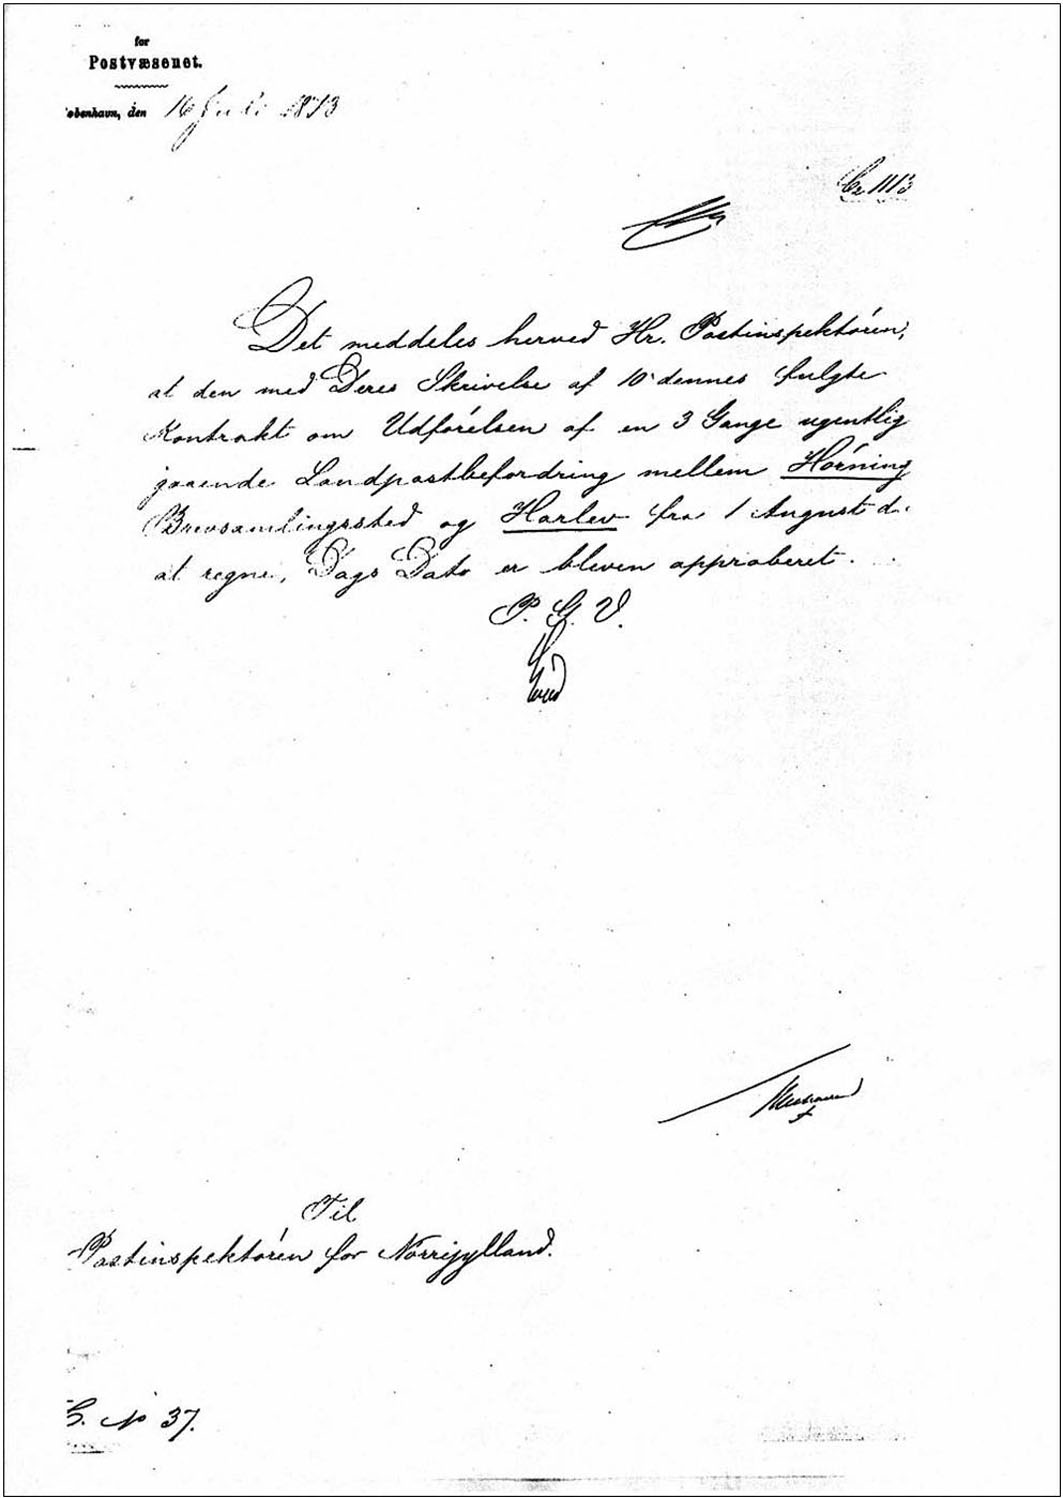 for
Postvæsenet.
København, den 16 Juli 1873
1113
Det meddeles herved Hr. Postinspektøren,
at den med Deres Skrivelse af 10 dennes fulgte
Kontrakt om Udførelsen af en 3 Gange ugentlig
gaaende Landpostbefordring mellem Hørning
Brevsamlingssted og Harlev fra 1 August d.
at regne, Dags Dato er bleven approberet.
P. G. V.
Lund
Til
Postinspektøren for Nørrejylland.
No 37.